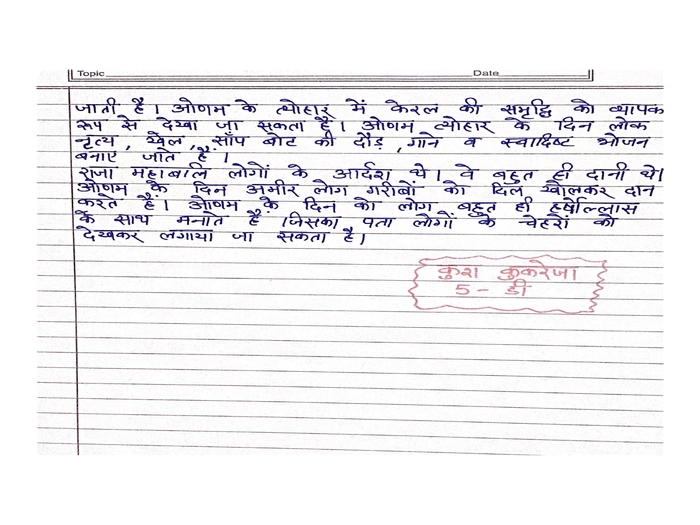 Topic Date
जाती है। ओणम के त्योहार में केरल की समृद्धि को व्यापक
रूप से देखा जा सकता है। ओणम त्योहार के दिन लोक
नृत्य, खेल, साँप बोट की दौड़, गाने व स्वादिष्ट भोजन
बनाए जाते हैं।
राजा महाबलि लोगों के आर्दश थे। वे बहुत ही दानी थे।
ओणम के दिन अमीर लोग गरीबों को दिल खोलकर दान
करते हैं। ओणम के दिन को लोग बहुत ही हर्षोल्लास
के साथ मनाते हैं ।जिसका पता लोगों के चेहरों को
देखकर लगाया जा सकता है।
कुश कुकरेजा
5 - डी